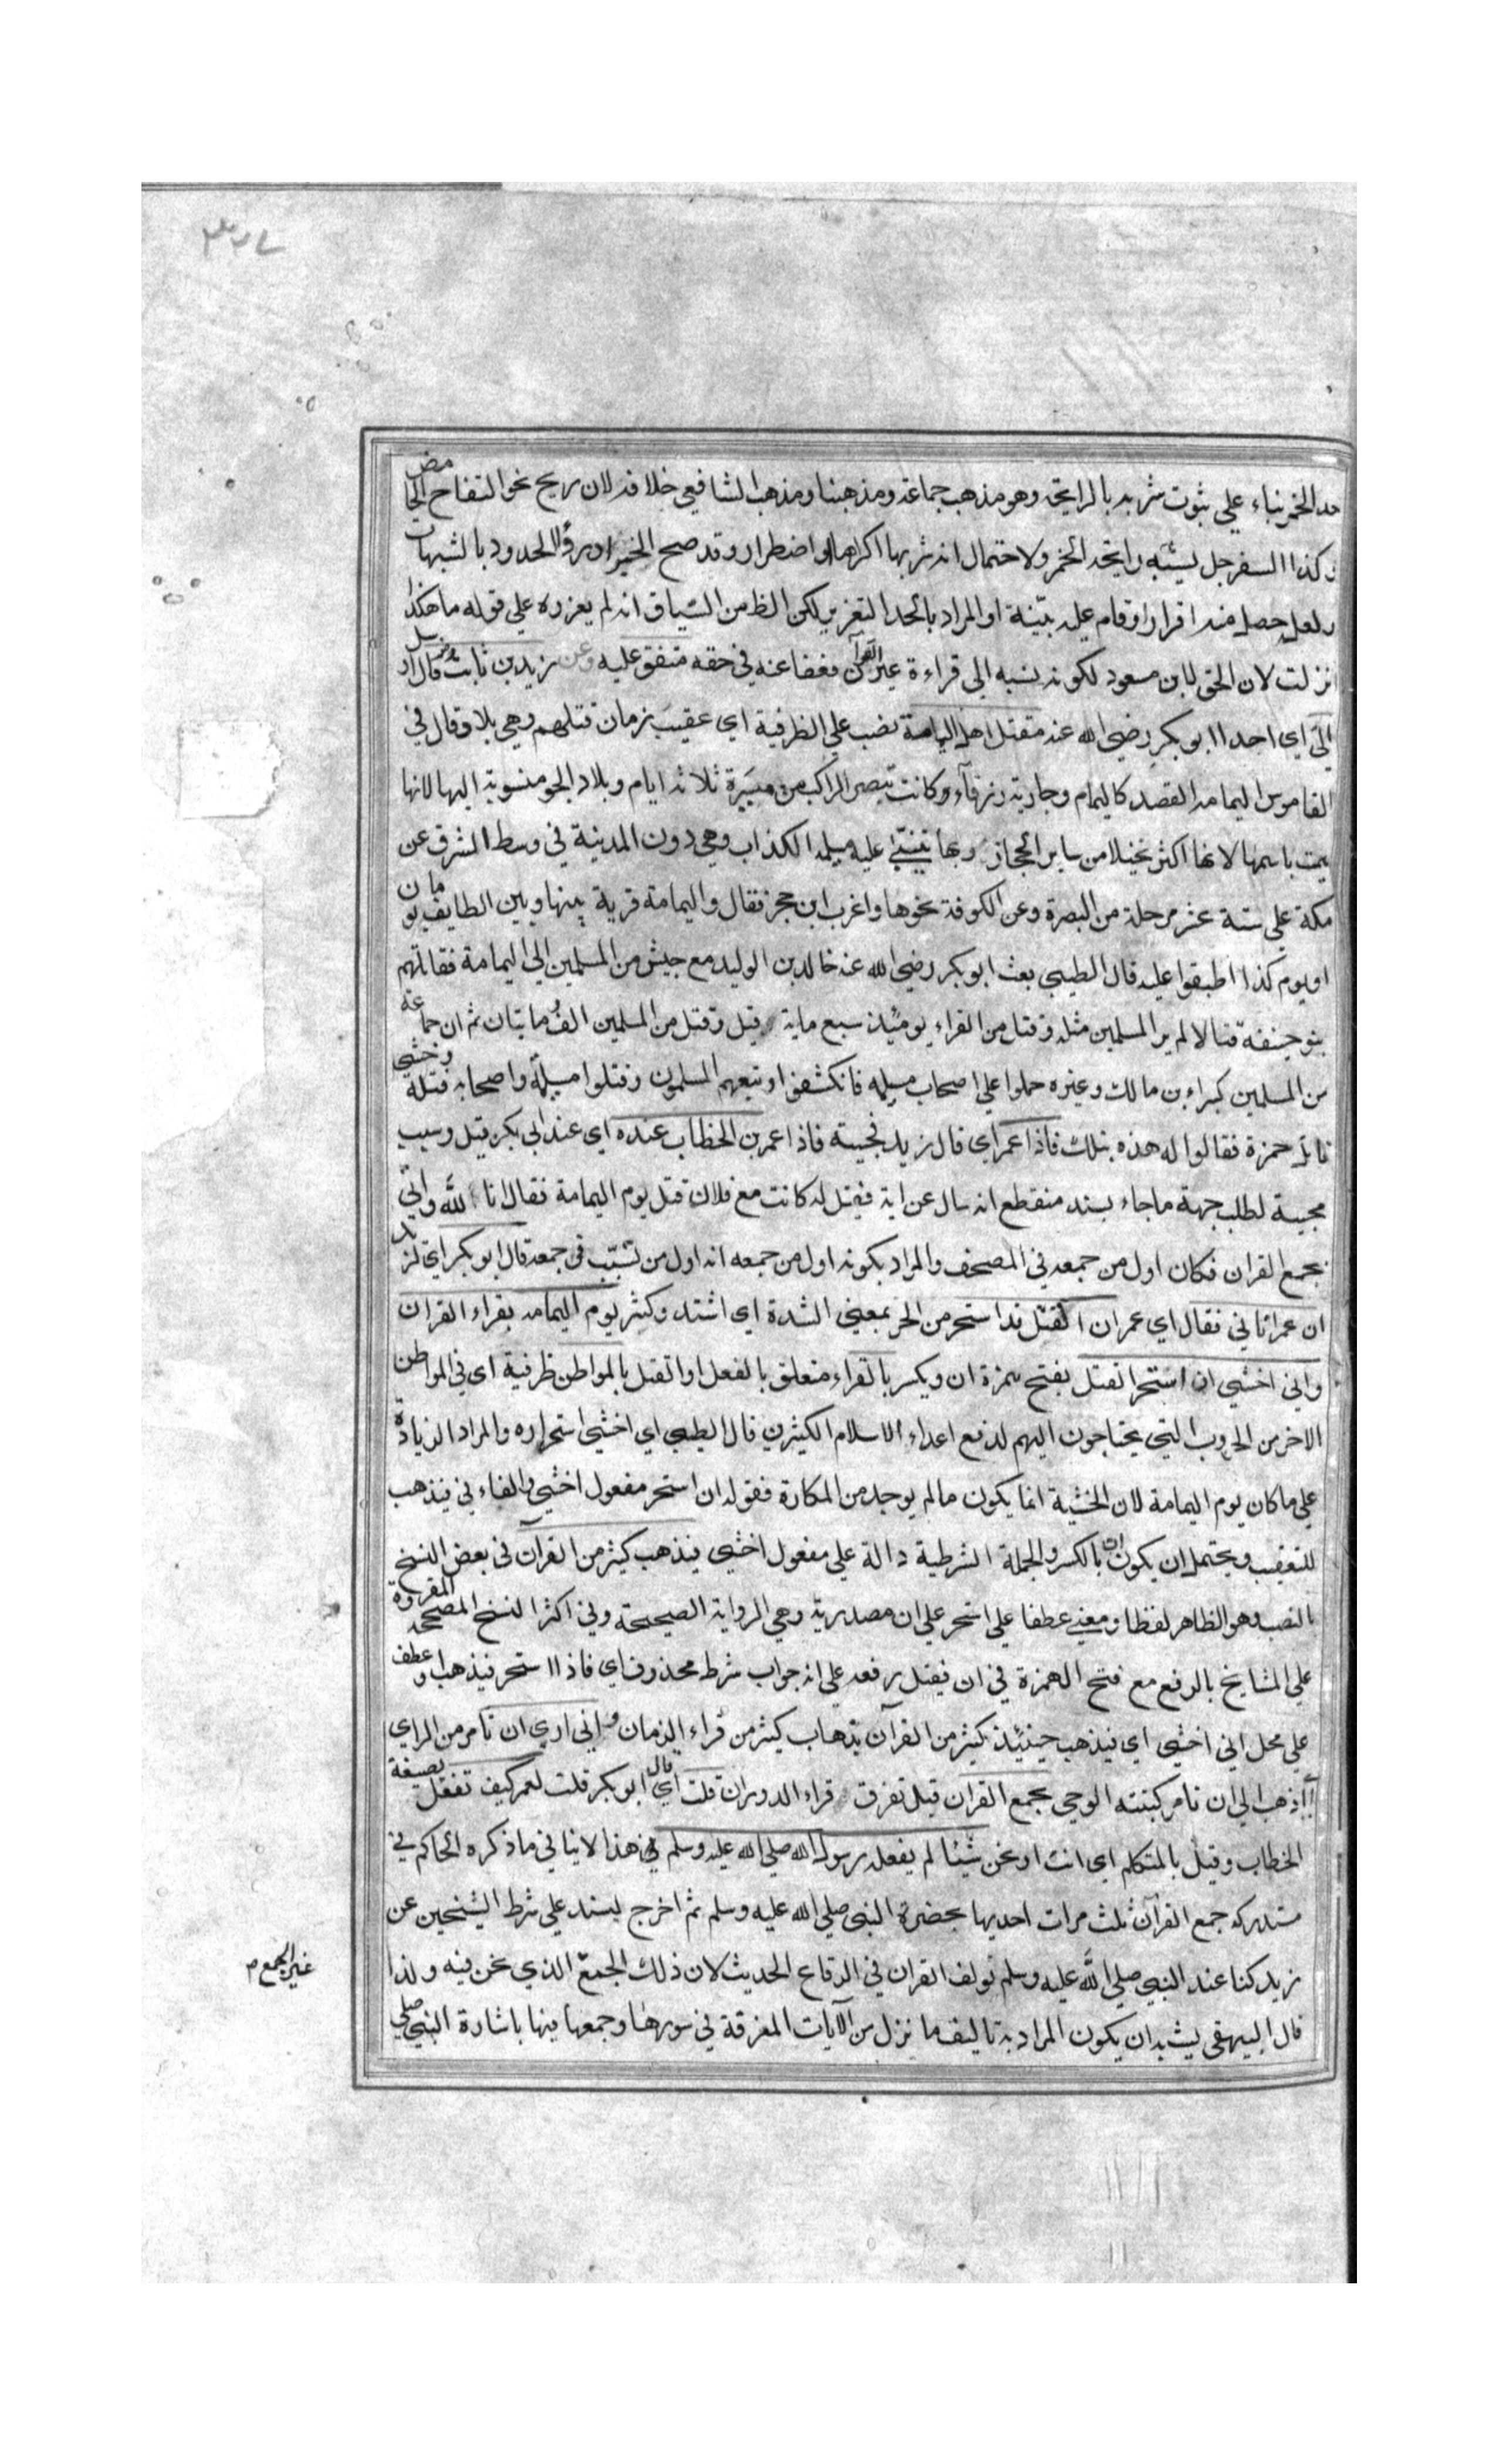 ٣٢٧
حد الخمر بناء علي ثبوت شربه بالرايحة وهو مذهب جماعة ومذهبنا ومذهب الشافعي خلافه لان ريح نحو التفاح الحامض
وكذا السفرجل يشبه رايحة الخمر ولاحتمال انه شربها اكراها او اضطرارا وقد صح الخبر ادرؤا الحدود بالشبهات
ولعل حصل منه اقرار او قام عليه بينة او المراد بالحد التعزير لكن الظ من السياق انه لم يعزره علي قوله ما هكذا
انزلت لان الحق لابن مسعود لكونه نسبه الي قراءة غير القرآن فعفا عنه في حقه متفق عليه وعن زيد بن ثابت قال ارسل
الي اي احدا ابو بكر رضي الله عنه مقتل اهل اليمامة نصب علي الظرفية اي عقيب زمان قتلهم وهي بلاد قال في
القاموس اليمامه القصد كاليمام وجارية زرقآء وكانت تبصر الراكب من مسيرة ثلاثه ايام وبلاد الجو منسوبة اليها لانها
سميت باسمها لانها اكثر نخيلا من ساير الحجاز وبها تنبئ عليه مسيلمه الكذاب وهي دون المدينة في وسط الشرق عن
مكة علي ستة عشر مرحلة من البصرة وعن الكوفة نحوها واغرب ابن حجر فقال واليمامة قرية بينها وبين الطايف يومان
او يوم كذا اطبقوا عليه قال الطيبي بعث ابو بكر رضي الله عنه خالد بن الوليد مع جيش من المسلمين الي اليمامة فقاتلهم
بنو حنيفة قتالا لم ير المسلمين مثله وقتل من القراء يومئذ سبع ماية وقيل وقتل من المسلمين الف ومايتان ثم ان جماعة
من المسلمين كبراء بن مالك وغيره حملوا علي اصحاب مسيلمه فانكشفوا وتبعهم المسلمون وقتلوا مسيلمة واصحابه قتله وحشي
قاتل حمزة فقالوا له هذه بتلك فاذا عمر اي قال زيد فجيته فاذا عمر بن الخطاب عنده اي عند ابي بكر قيل وسبب
مجيئه لطلب جهة ما جاء بسند منقطع انه سال عن اية فقيل له كانت مع فلان قتل يوم اليمامة فقال انا لله واتي
بجمع القران فكان اول من جمعه في المصحف والمراد بكونه اول من جمعه انه اول من تسبب في جمعه قال ابو بكر اي لزيد
ان عمر اتاني فقال اي عمر ان القتل قد استحر من الحر بمعني الشدة اي اشتد وكثر يوم اليمامه بقراء القران
واني اخشي ان استحر القتل بفتح همزة ان ويكسر بالقراء متعلق بالفعل او القتل بالمواطن ظرفية اي في المواطن
الاخر من الحروب التي يحتاجون اليهم لدفع اعداء الاسلام الكثيرين قال الطيبي اي اخشي استحراره والمراد الزيادة
علي ما كان يوم اليمامة لان الخشية انما يكون مالم يوجد من المكارة فقوله ان استحر مفعول اخشي والفاء في فيذهب
للتعقيب ويحتمل ان يكون ان بالكسر والجملة الشرطية دالة علي مفعول اخشي فيذهب كثير من القرآن في بعض النسخ
بالنصب وهو الظاهر لفظا ومعني عطفا علي استحر علي ان مصدرية وهي الرواية الصحيحة وفي اكثر النسخ المصححه المقروة
علي المشايخ بالرفع مع فتح الهمزة في ان فيقتل رفعه علي انه جواب شرط محذوف اي فاذا استحر فيذهب او عطف
علي محل اني اخشي اي فيذهب حينئذ كثير من القرآن بذهاب كثير من قراء الزمان واني اري ان تامر من الراي
اذهب الي ان تامر كتبته الوحي بجمع القران قبل تفرق قراء الدوران قلت اي قال ابو بكر قلت لعمر كيف تفعل بصيغة
الخطاب وقيل بالمتكلم اي انت او نحن شيئا لم يفعله رسول الله صلي الله عليه وسلم في هذا لا ينافي ما ذكره الحاكم في
مستدركه جمع القرآن ثلث مرات احديها بحضرة النبي صلي الله عليه وسلم ثم اخرج بسند علي شرط الشيخين عن
زيد كنا عند النبي صلي الله عليه وسلم نولف القران في الرقاع الحديث لان ذلك الجمع الذي نحن فيه ولذا
غير الجمع م
قال البيهقي يشبه ان يكون المراد به تاليف ما نزل من الآيات المفرقة في سورها وجمعها فيها باشارة النبي صلي